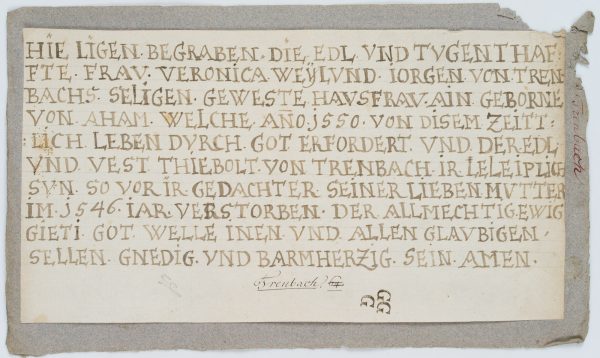 HIE LIGEN · BEGRABEN · DIE EDL VND TVGENTHAF=
FTE · FRAV · VERONICA WEŸLVND · IORGEN VON TREN=
BACHS · SELIGEN · GEWESTE HAVSFRAV · AIN GEBORNE
VON · AHAM · WELCHE AÑO · 1550 · VON DISEM ZEITT=
LICH LEBEN DVRCH · GOT ERFORDERT · VND · DER EDL
VND VEST THIEBOLT · VON TRENBACH · IR LELEIPLICH
SVN · SO VOR IR GEDACHTER SEINER LIEBEN MVTTER
IM · 1546 · IAR VERSTORBEN · DER ALLMECHTIG · EWIG
GIETI · GOT WELLE INEN VND ALLEN GLAVBIGEN ·
SELLEN GNEDIG · VND BARMHERZIG · SEIN · AMEN ·
Trenbach